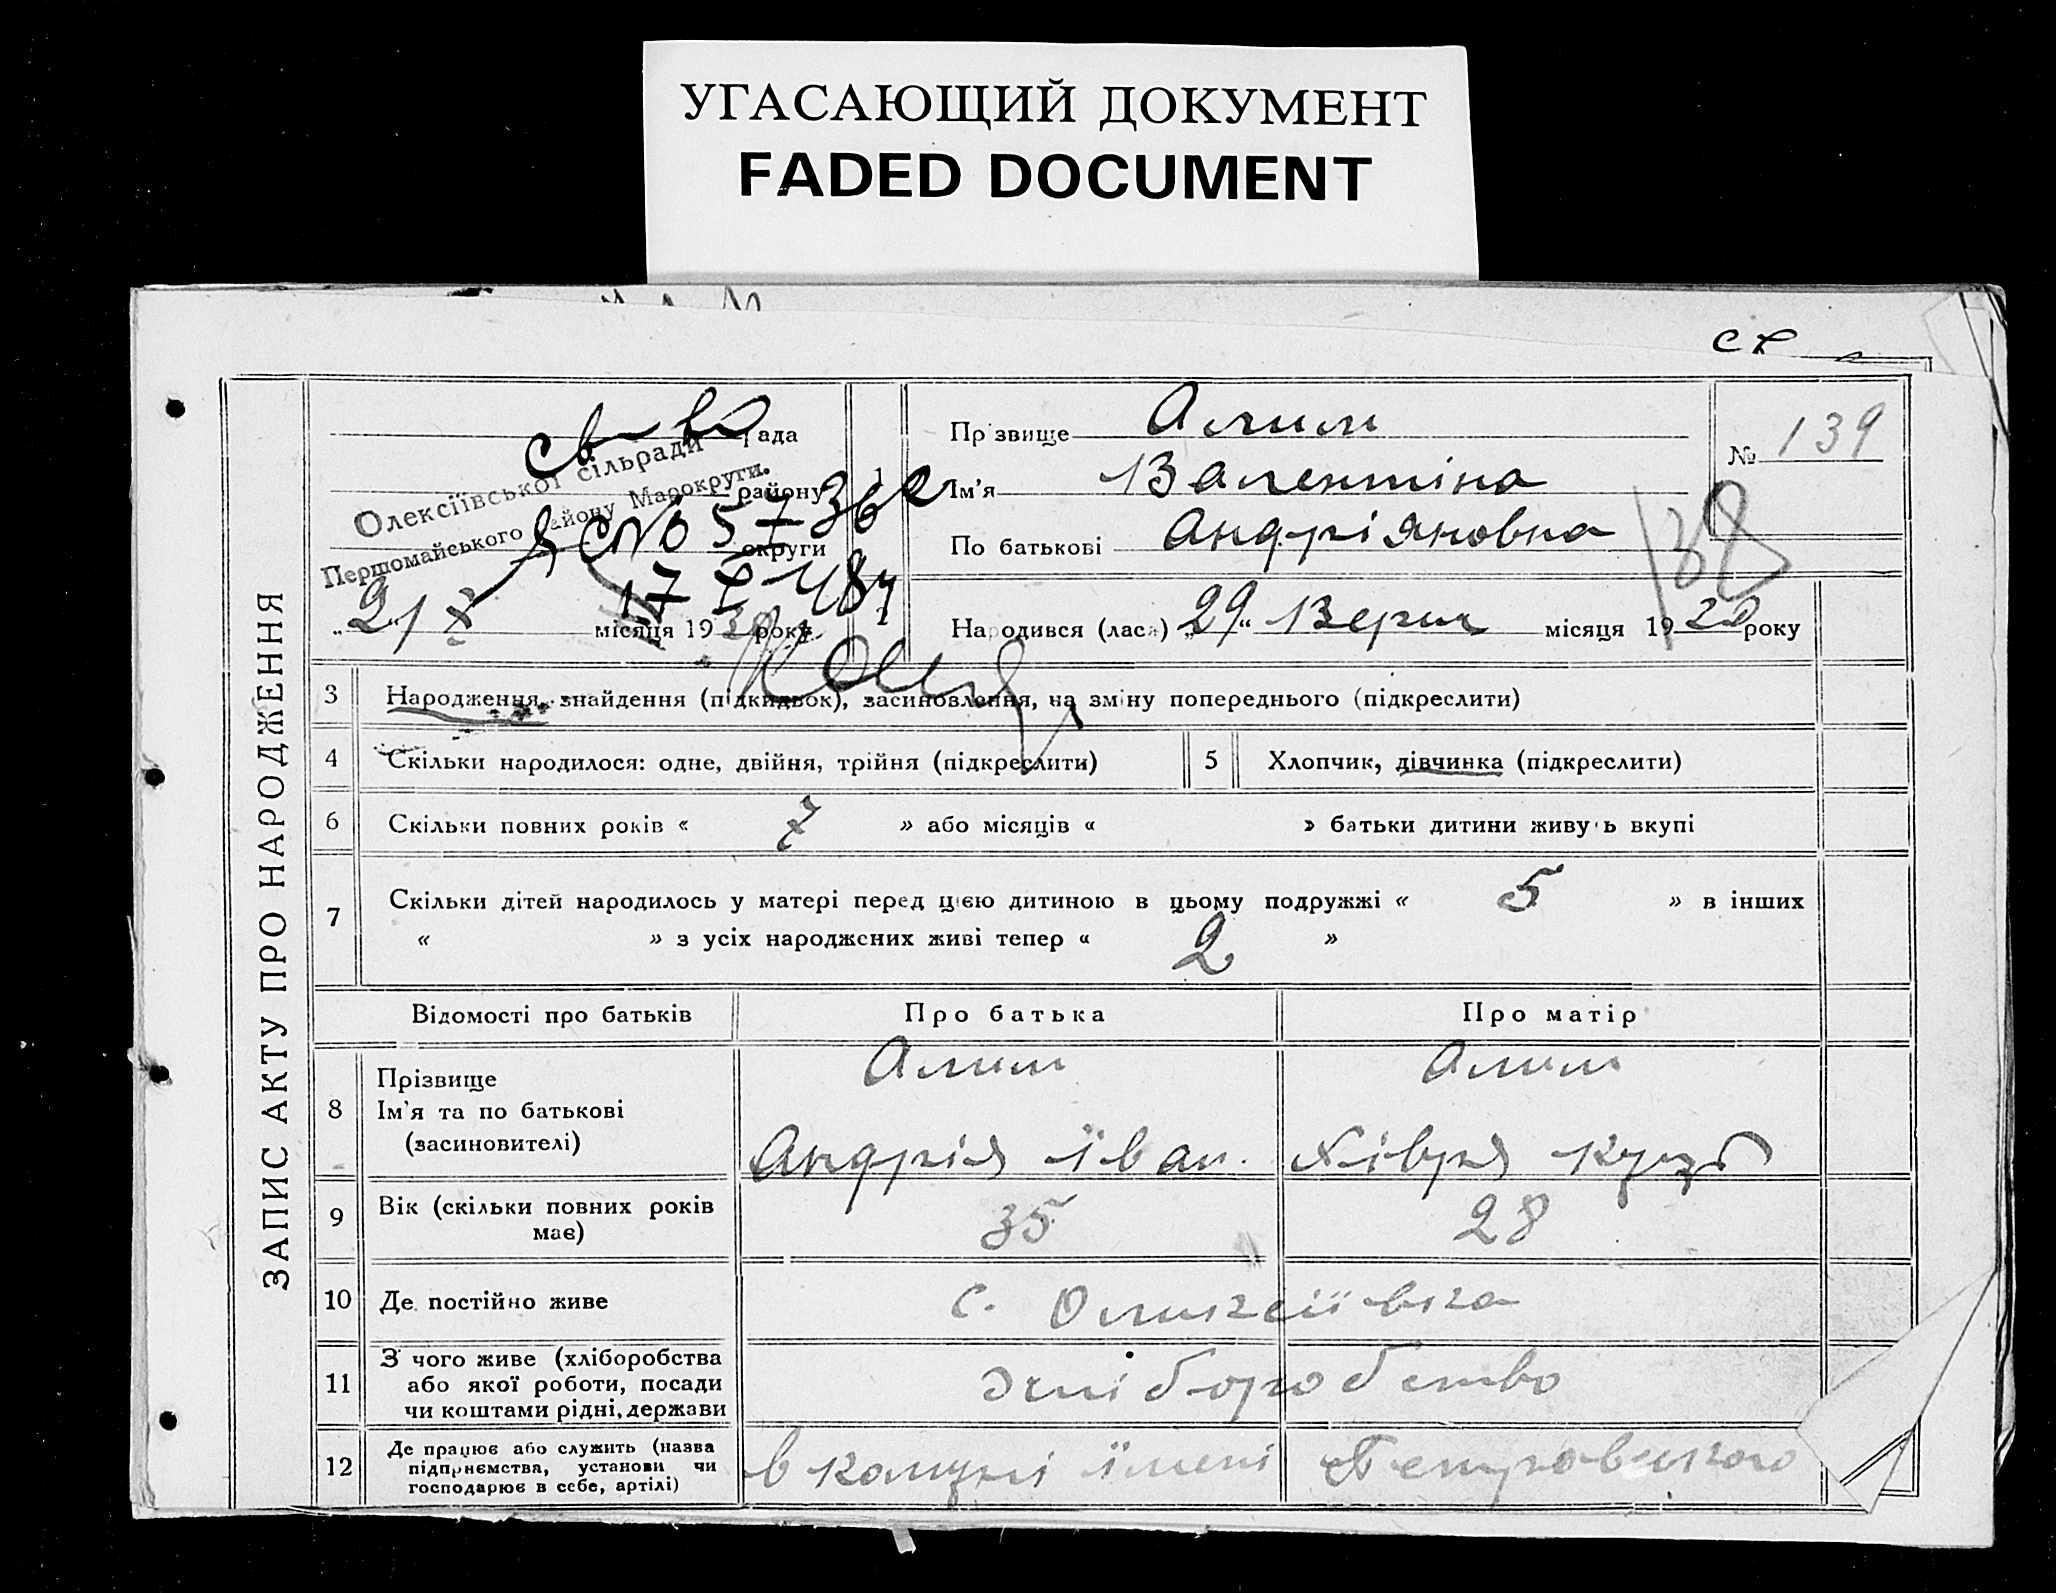 УГАСАЮЩИЙ ДОКУМЕНТ
FADED DOCUMENT
ЗАПИС АКТУ ПРО НАРОДЖЕННЯ
св во рада
Олексіївської сільради
району
Першомайського району Марокруги.
№ 57
округи
17 X 48
„21“ X місяця 1930 року
Прізвище Алим
№ 139
138
Ім'я Валентіна
По батькові Андріяновна
Народився (лась) „29“ Верш місяця 19 року
3 Народження, знайдення (підкидьок), засиновлення, на зміну попереднього (підкреслити)
4 Скільки народилося: одне, двійня, трійня (підкреслити)
5 Хлопчик, дівчинка (підкреслити)
6 Скільки повних років « 7 » або місяців « » батьки дитини живуть вкупі
7 Скільки дітей народилось у матері перед цією дитиною в цьому подружжі « 5 » в інших
« » з усіх народжених живі тепер « 2 »
Відомості про батьків Про батька Про матір
8 Прізвище
Ім'я та по батькові
(засиновителі)
Алим Алим
Андрія Іван. Ківря
9 Вік (скільки повних років має) 35 28
10 Де постійно живе с. Оликсіївка
11 З чого живе (хліборобства
або якої роботи, посади
чи коштами рідні, держави
хліборобство
12 Де працює або служить (назва
підприємства, установи чи
господарює в себе, артілі)
в комуні імені Петровського